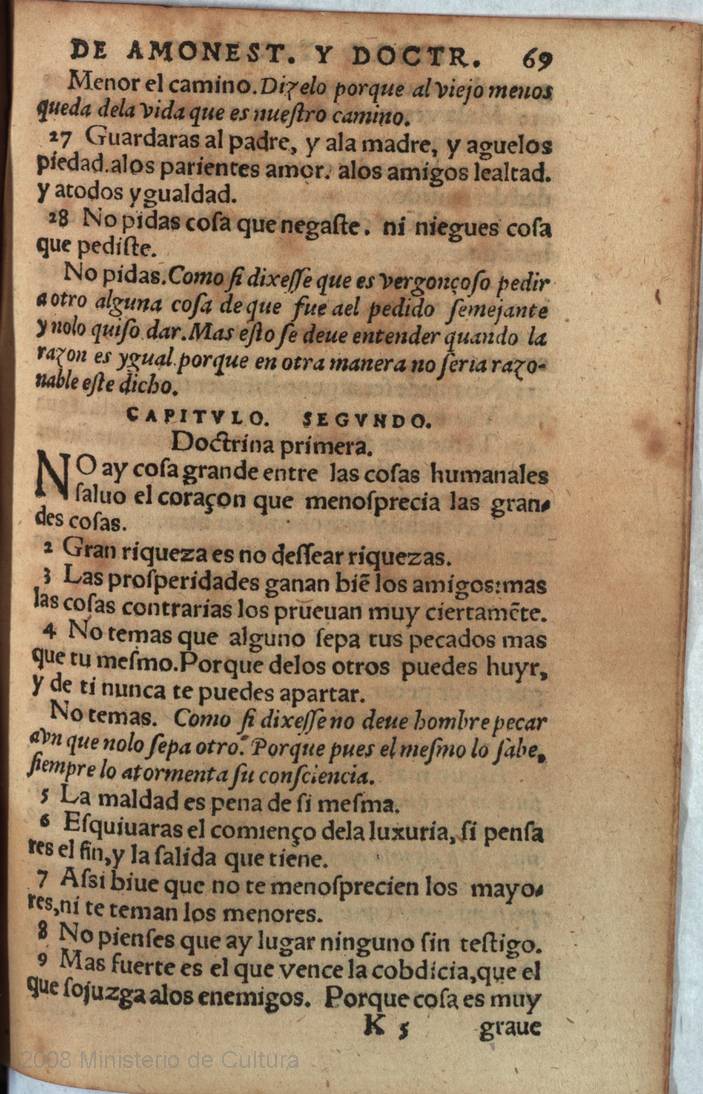 DE AMONEST. Y DOCTR. 69
Menor el camino. Dizelo porque al viejo menos
queda dela vida que es nueſtro camino.
27 Guardaras al padre, y ala madre, y aguelos
piedad. alos parientes amor. alos amigos lealtad.
y atodos ygualdad.
28 No pidas coſa que negaſte. ni niegues coſa
que pediſte.
No pidas. Como ſi dixeſſe que es vergonçoſo pedir
a otro alguna coſa de que fue ael pedido ſemejante
y nolo quiſo dar. Mas eſto ſe deue entender quando la
razon es ygual. porque en otra manera no ſeria razo-
nable eſte dicho.
CAPITVLO. SEGVNDO.
Doctrina primera.
NO ay coſa grande entre las coſas humanales
ſaluo el coraçon que menoſprecia las gran-
des coſas.
2 Gran riqueza es no deſſear riquezas.
3 Las proſperidades ganan biē los amigos: mas
las coſas contrarias los prueuan muy ciertamēte.
4 No temas que alguno ſepa tus pecados mas
que tu meſmo. Porque delos otros puedes huyr,
y de ti nunca te puedes apartar.
No temas. Como ſi dixeſſe no deue hombre pecar
avn que nolo ſepa otro. Porque pues el meſmo lo ſabe,
ſiempre lo atormenta ſu conſciencia.
5 La maldad es pena de ſi meſma.
6 Eſquiuaras el comienço dela luxuria, ſi penſa
res el fin, y la ſalida que tiene.
7 Aſsi biue que no te menoſprecien los mayo-
res, ni te teman los menores.
8 No pienſes que ay lugar ninguno ſin teſtigo.
9 Mas fuerte es el que vence la cobdicia, que el
que ſojuzga alos enemigos. Porque coſa es muy
K 5 graue
2008 Ministerio de Cultura